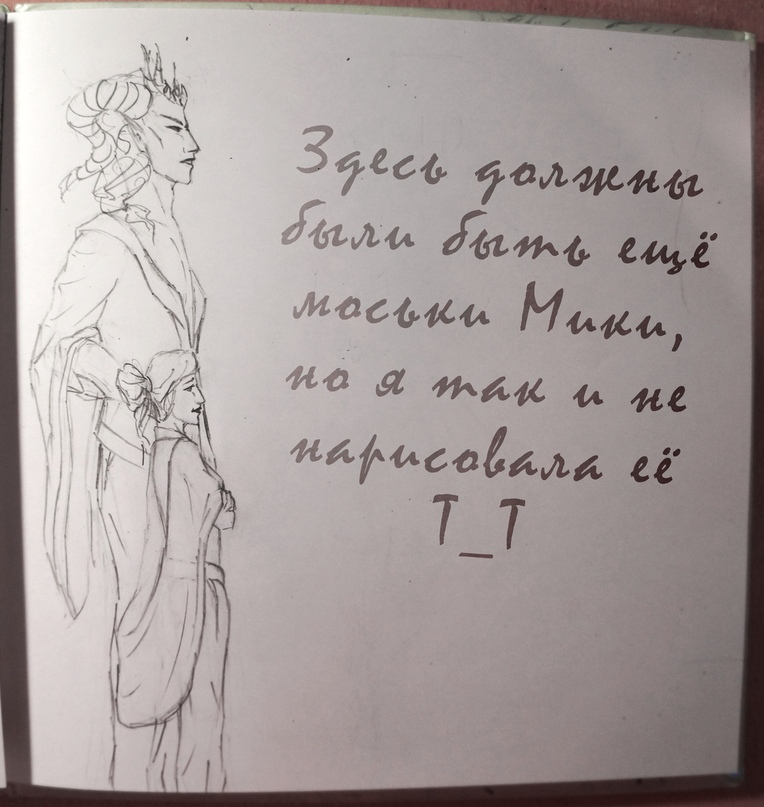 Здесь должны
были быть ещё
моськи Мики,
но я так и не
нарисовала её
T_T